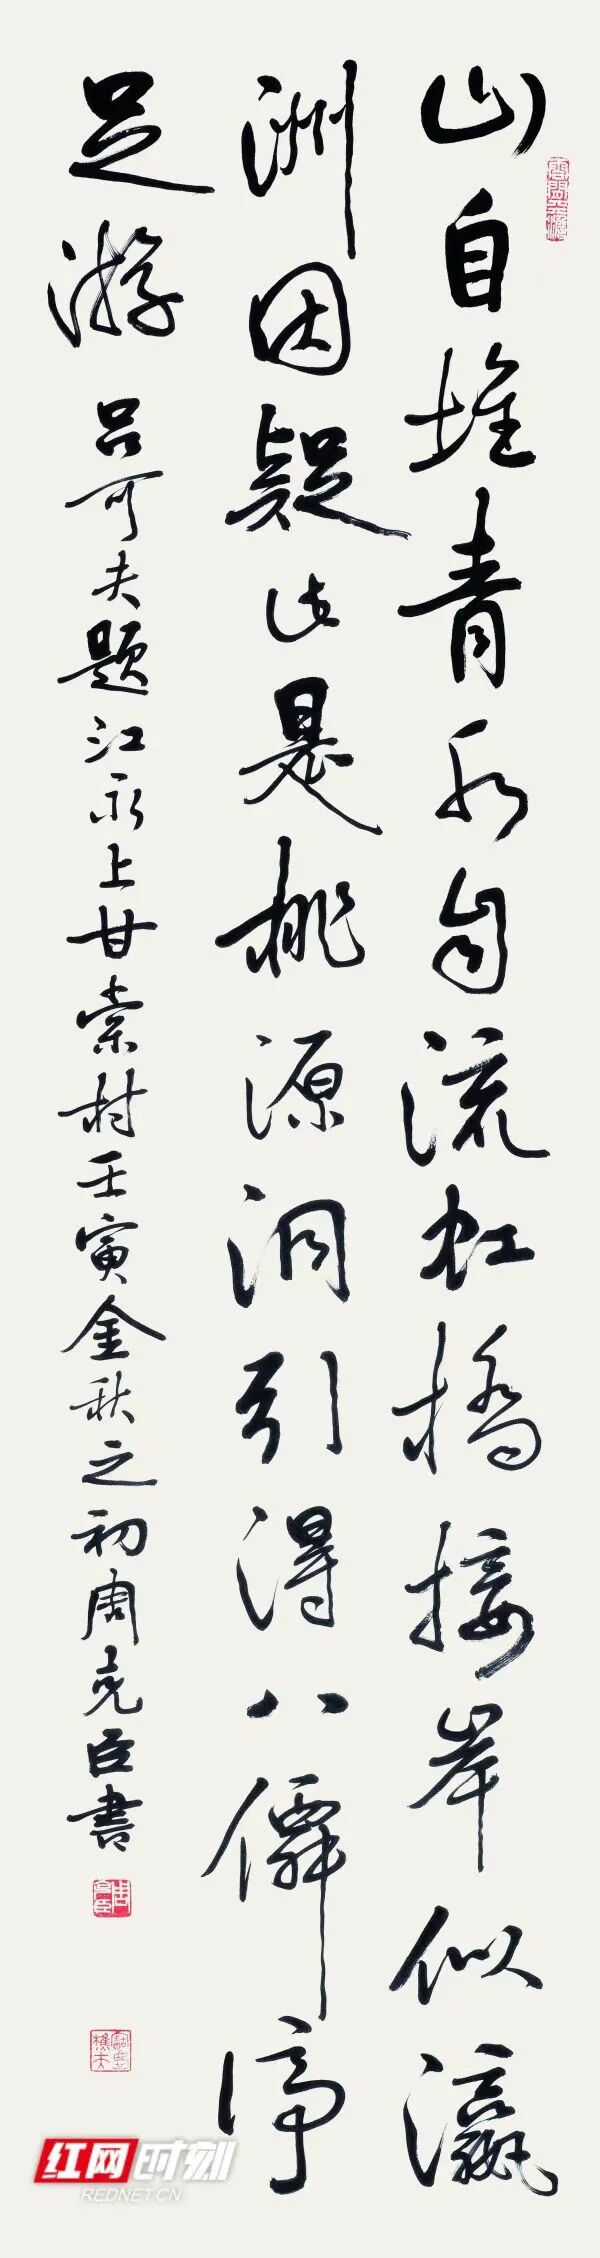 山自堆青水自流虹橋接岸似瀛
洲因疑此是桃源洞引得八僊停
足游 吕可夫题江永上甘棠村壬寅金秋之初周克臣書
红网时刻
REDNET.CN